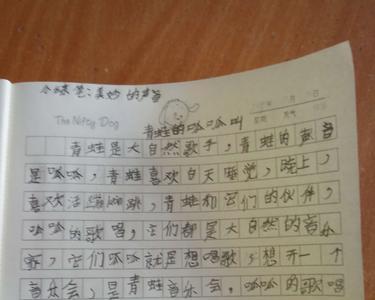 小练笔:美妙的声音
The Nifty Dog
星期 天气
青蛙的呱呱叫
青蛙是大自然歌手,青蛙的声音
是呱呱,青蛙喜欢白天睡觉,晚上,
喜欢活蹦乱跳,青蛙和它们的伙伴,
呱呱的歌唱,它们都是大自然的音乐
家,它们呱呱就是想唱歌,想开一个
音乐会,是青蛙音乐会,呱呱的歌唱